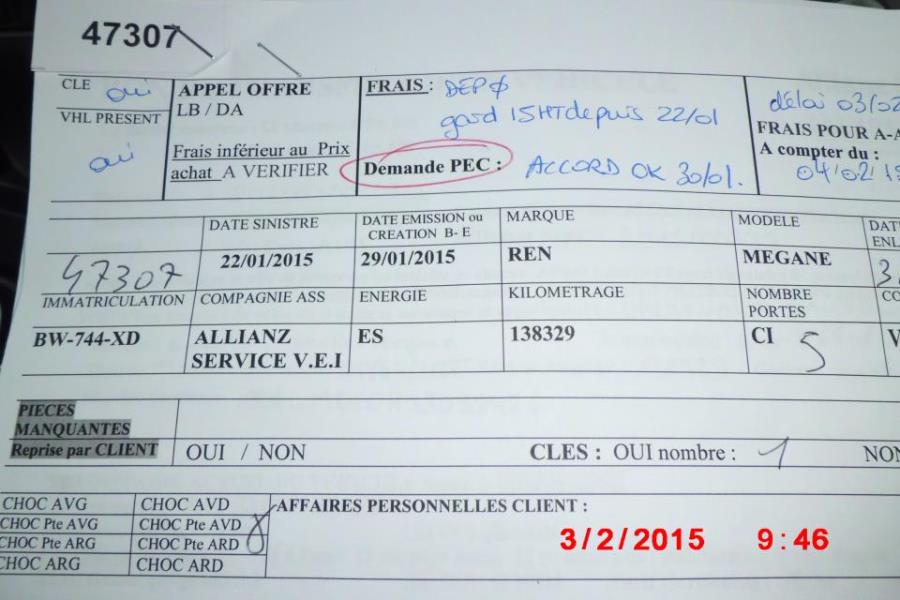 47307
CLE oui
VHL PRESENT
oui
APPEL OFFRE
LB / DA
Frais inférieur au Prix
achat A VERIFIER
FRAIS : DEPØ
gard 15HT depuis 22/01
Demande PEC : ACCORD OK 30/01.
délai 03/02
FRAIS POUR A-A
A compter du :
04/02/15
DATE SINISTRE
DATE EMISSION ou
CREATION B- E
MARQUE
MODELE
DAT
ENL
47307
22/01/2015
29/01/2015
REN
MEGANE
3
IMMATRICULATION
COMPAGNIE ASS
ENERGIE
KILOMETRAGE
NOMBRE
PORTES
CO
BW-744-XD
ALLIANZ
SERVICE V.E.I
ES
138329
CI 5
V
PIECES
MANQUANTES
Reprise par CLIENT
OUI / NON
CLES : OUI nombre : 1
NON
CHOC AVG
CHOC AVD
AFFAIRES PERSONNELLES CLIENT :
CHOC Pte AVG
CHOC Pte AVD
CHOC Pte ARG
CHOC Pte ARD
CHOC ARG
CHOC ARD
3/2/2015 9:46